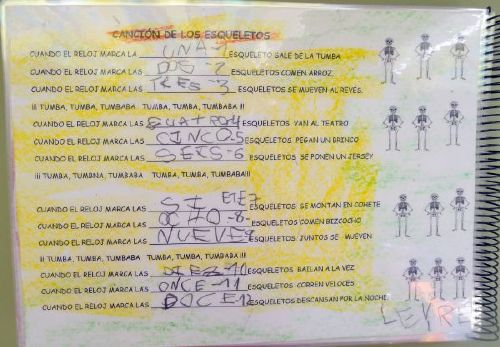 CANCIÓN DE LOS ESQUELETOS
CUANDO EL RELOJ MARCA LA UNA-1 ESQUELETO SALE DE LA TUMBA
CUANDO EL RELOJ MARCA LAS DOS-2 ESQUELETOS COMEN ARROZ
CUANDO EL RELOJ MARCA LAS TRES-3 ESQUELETOS SE MUEVEN AL REVES.
¡¡¡ TUMBA, TUMBA, TUMBABA TUMBA, TUMBA, TUMBABA !!!
CUANDO EL RELOJ MARCA LAS CUATRO4 ESQUELETOS VAN AL TEATRO
CUANDO EL RELOJ MARCA LAS CINCO5 ESQUELETOS PEGAN UN BRINCO
CUANDO EL RELOJ MARCA LAS SEIS-6 ESQUELETOS SE PONEN UN JERSEY
¡¡¡ TUMBA, TUMBNA, TUMBABA TUMBA, TUMBA, TUMBABA!!!
CUANDO EL RELOJ MARCA LAS SIETE7 ESQUELETOS SE MONTAN EN COHETE
CUANDO EL RELOJ MARCA LAS OCHO-8- ESQUELETOS COMEN BIZCOCHO
CUANDO EL RELOJ MARCA LAS NUEVE9 ESQUELETOS JUNTOS SE MUEVEN
¡¡¡ TUMBA, TUMBA, TUMBABA TUMBA, TUMBA, TUMBABA !!!
CUANDO EL RELOJ MARCA LAS DIEZ-10 ESQUELETOS BAILAN A LA VEZ
CUANDO EL RELOJ MARCA LAS ONCE-11 ESQUELETOS CORREN VELOCES
CUANDO EL RELOJ MARCA LAS DOCE-12 ESQUELETOS DESCANSAN POR LA NOCHE
LEYRE